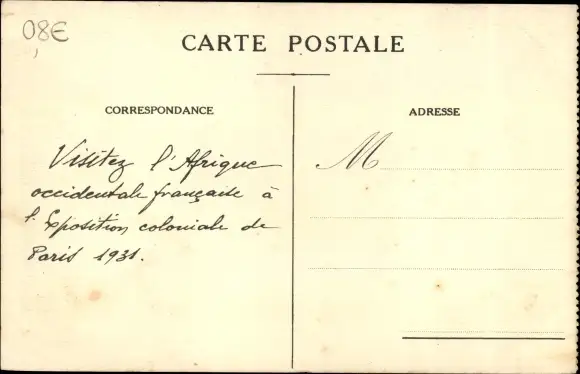 08€
CARTE POSTALE
CORRESPONDANCE
ADRESSE
Visitez l'Afrique
occidentale française à
l'Exposition coloniale de
Paris 1931.
M